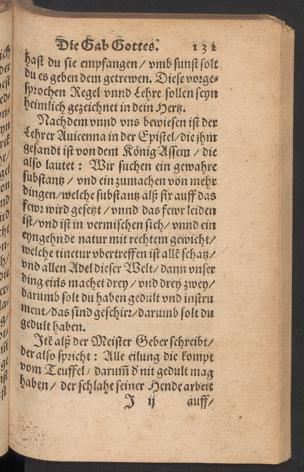 Die Gab Gottes. 131
hast du sie empfangen / vmb sunst solt
du es geben dem getrewen. Diese vorge-
sprochen Regel vnnd Lehre sollen seyn
heimlich gezeichnet in dein Hertz.
Nachdem vnnd vns bewiesen ist der
Lehrer Auicenna in der Epistel / die jhm
gesandt ist von dem König Assem / die
also lautet : Wir suchen ein gewahre
substantz / vnd ein zumachen von mehr
dingen / welche substantz alß sir auff das
fewr wird gesetzt / vnnd das fewr leiden
ist / vnd ist in vermischen sich / vnnd ein
eyngehnde natur mit rechtem gewicht /
welche tinctur vbertreffen ist alle schatz /
vnd allen Adel dieser Welt / dann vnser
ding eins machet drey / vnd drey zwey /
darumb solt du haben gedult vnd instru
ment / das sind geschirr / darumb solt du
gedult haben.
Ité alß der Meister Geber schreibt /
der also spricht : Alle eilung die kompt
vom Teuffel / darum̃ d' nit gedult mag
haben / der schlahe seiner Hende arbeit
J ij auff /